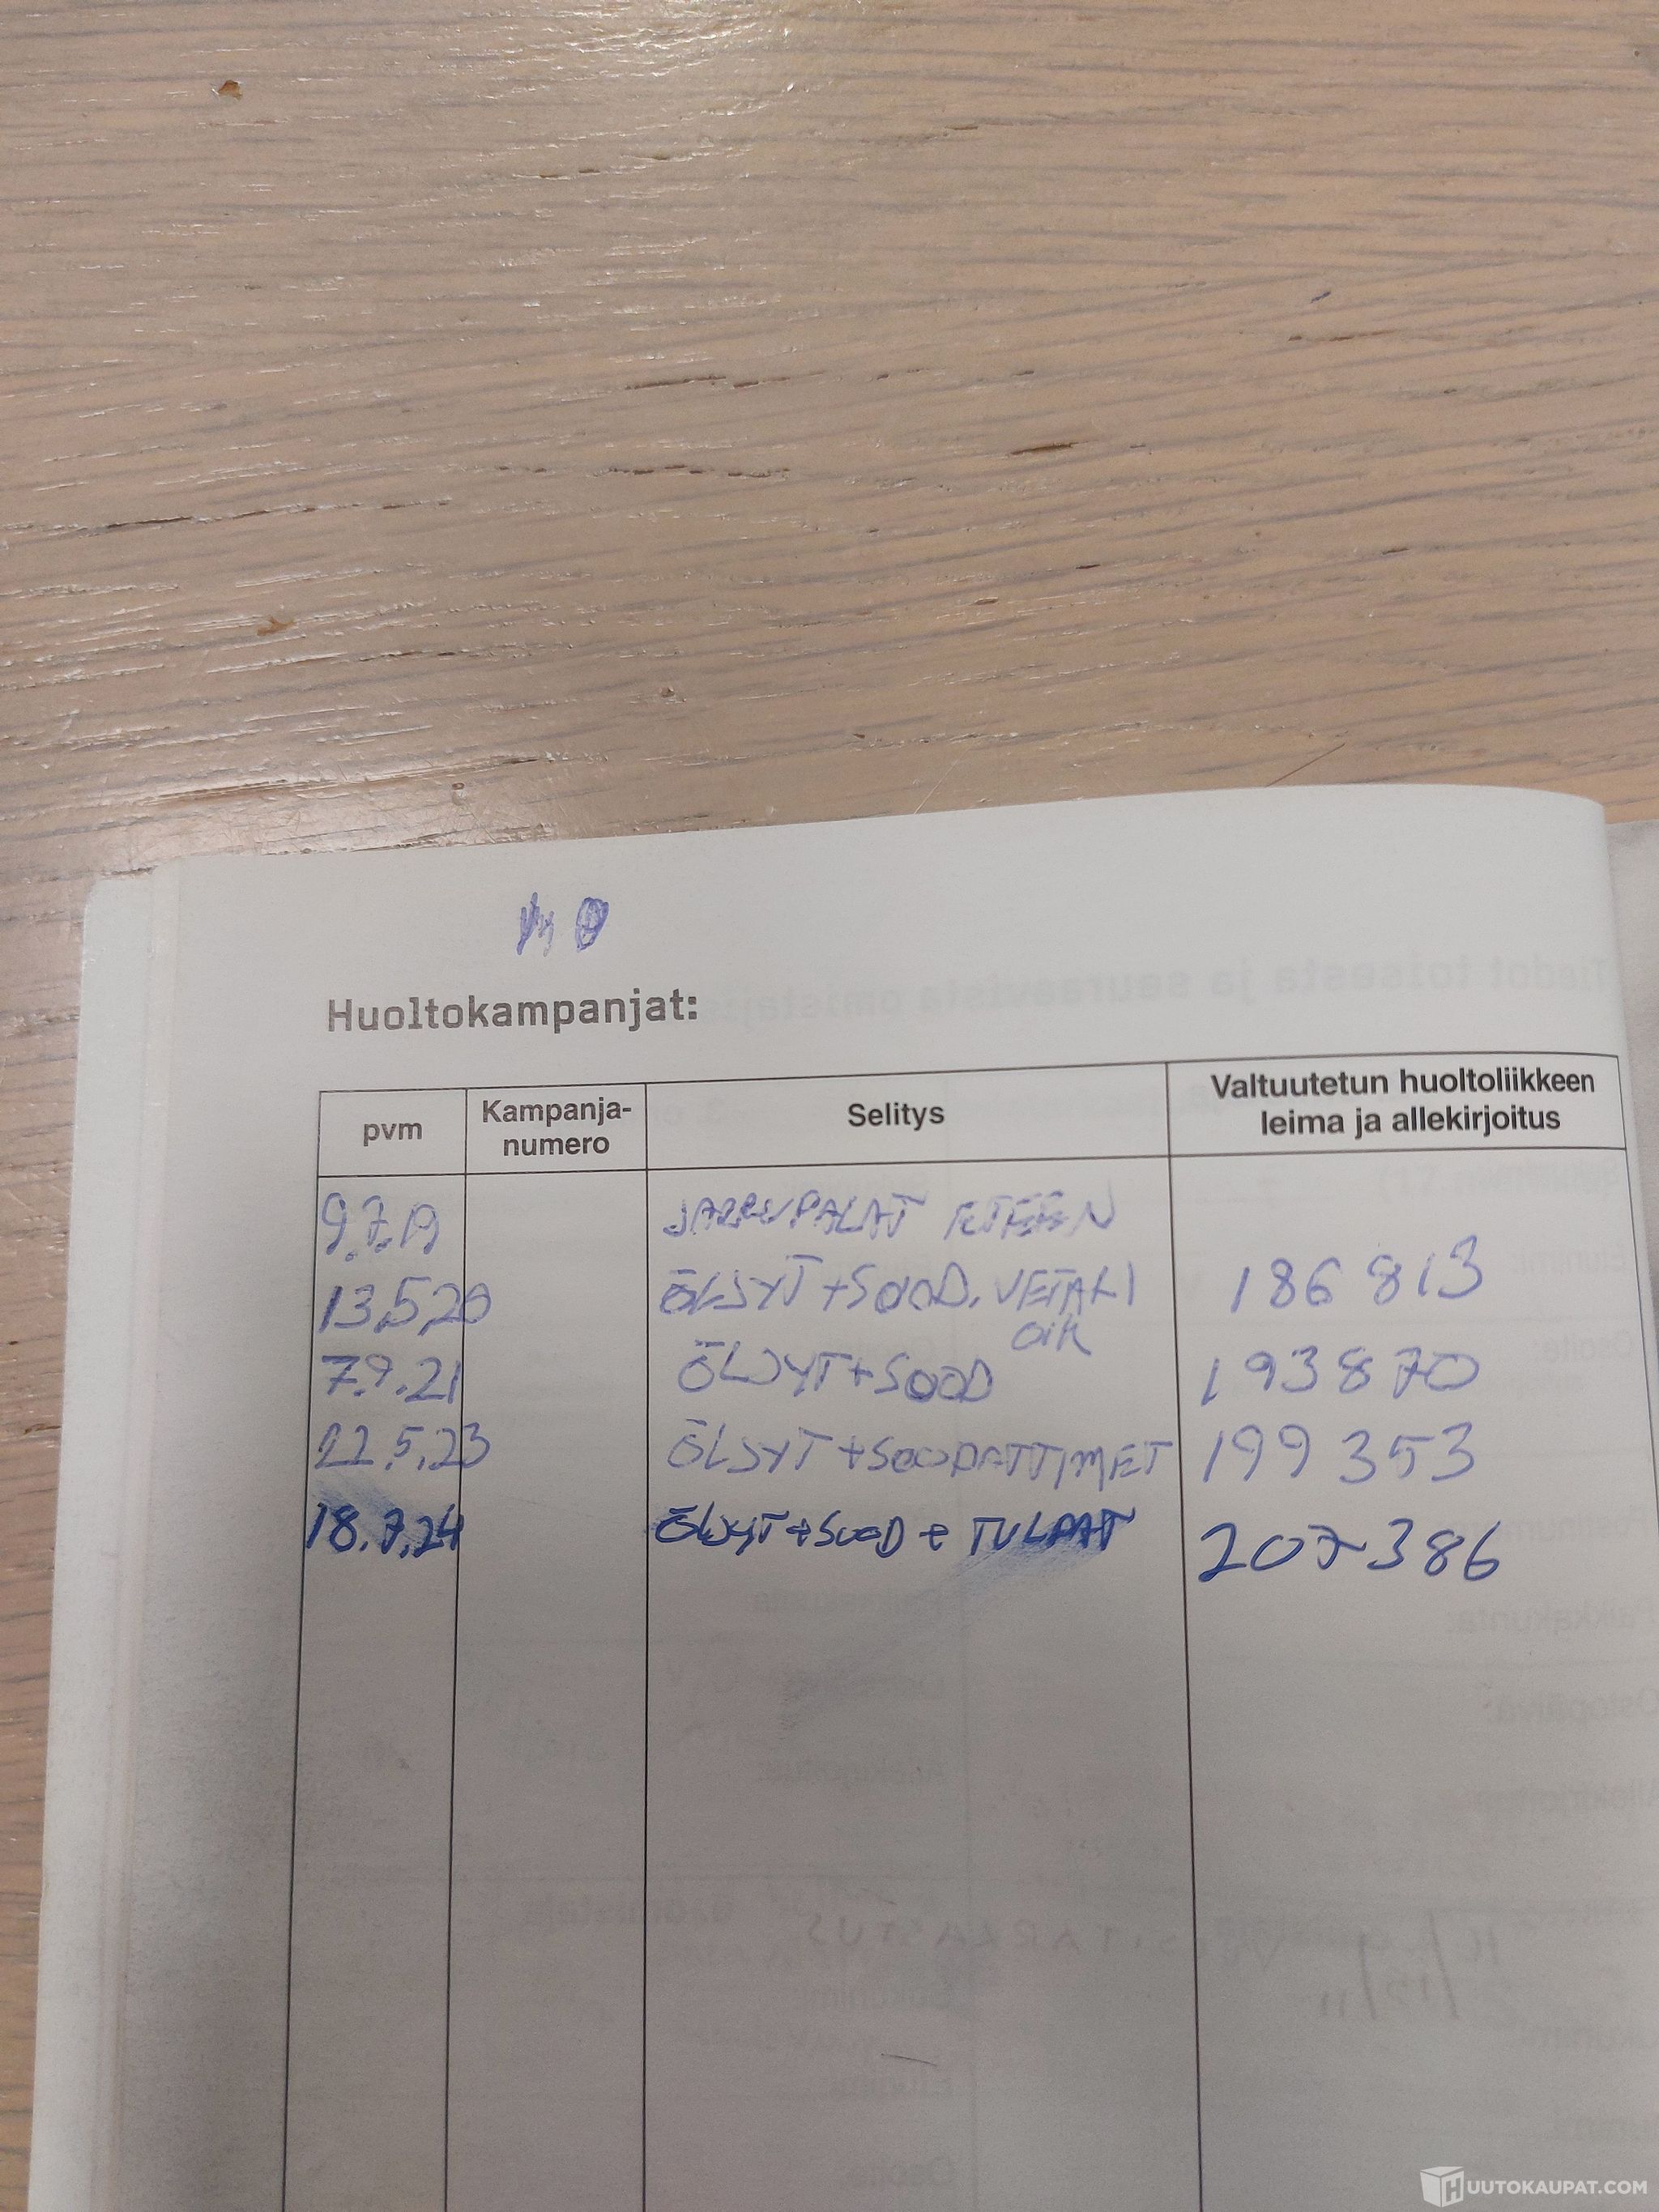 Huoltokampanjat:
pvm Kampanja-numero Selitys Valtuutetun huoltoliikkeen leima ja allekirjoitus
9.7.19 JARRUPALAT ETEEN
13.5.20 ÖLJYT+SUOD. VETÄKI 186 813
OIK
7.9.21 ÖLJYT+SUOD 193870
22.5.23 ÖLJYT+SUODATTIMET 199 353
18.7.24 ÖLJYT+SUOD+TULPAT 207386
HUUTOKAUPAT.COM